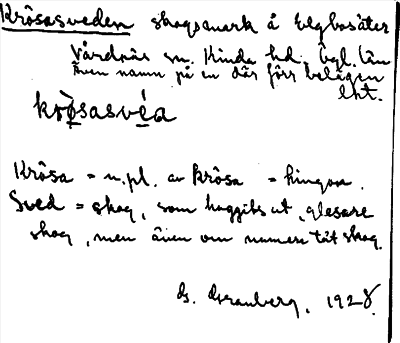 Krôsasveden skogsmark å Elgbosäter
Vårdnäs sn. Kinda hd. Ögl. län
Även namn på en där förr belägen
lht.
krò̱sasvé̱a
Krôsa = n. pl. av krôsa = lingon.
Sved = skog, som huggits ut, glesare
skog, men även om numera tät skog.
G. Granberg, 1928.